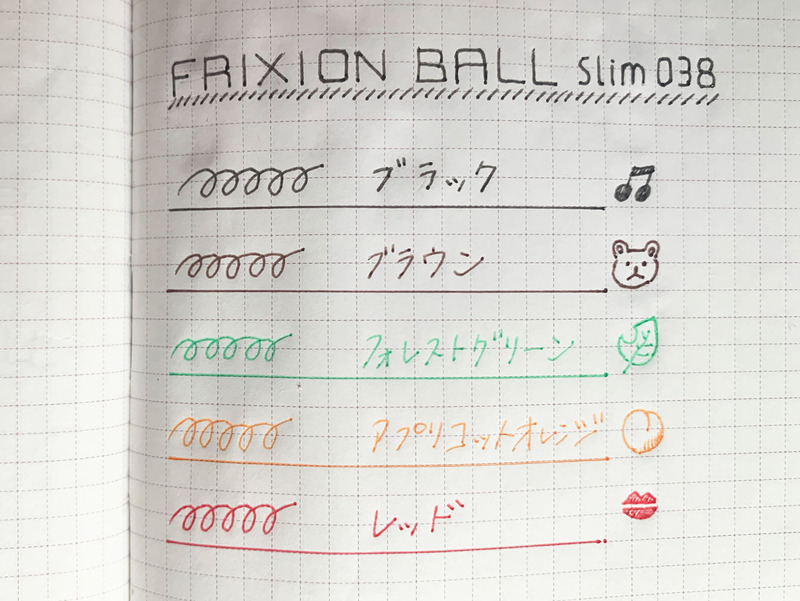 FRIXION BALL Slim 038
ブラック
ブラウン
フォレストグリーン
アプリコットオレンジ
レッド